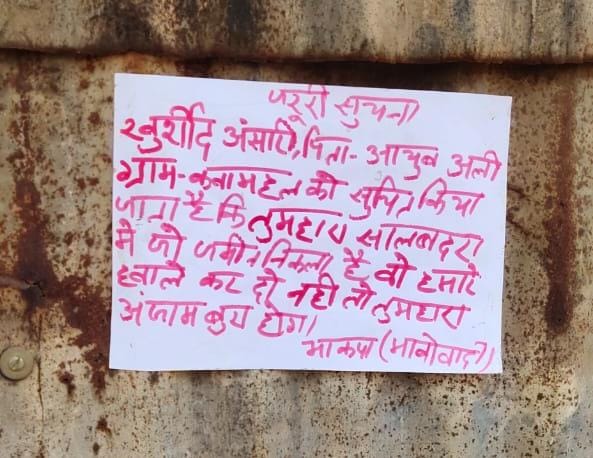 जरूरी सुचना
खुर्शीद अंसारी, पिता- आयुब अली
ग्राम- कवामहल को सुचित किया
जाता है कि तुम्हारा सालबदरा
में जो जमीन निकला है वो हमारे
हवाले कर दो नहीं तो तुम्हारा
अंजाम बुरा होगा।
भाकपा (माओवादी)